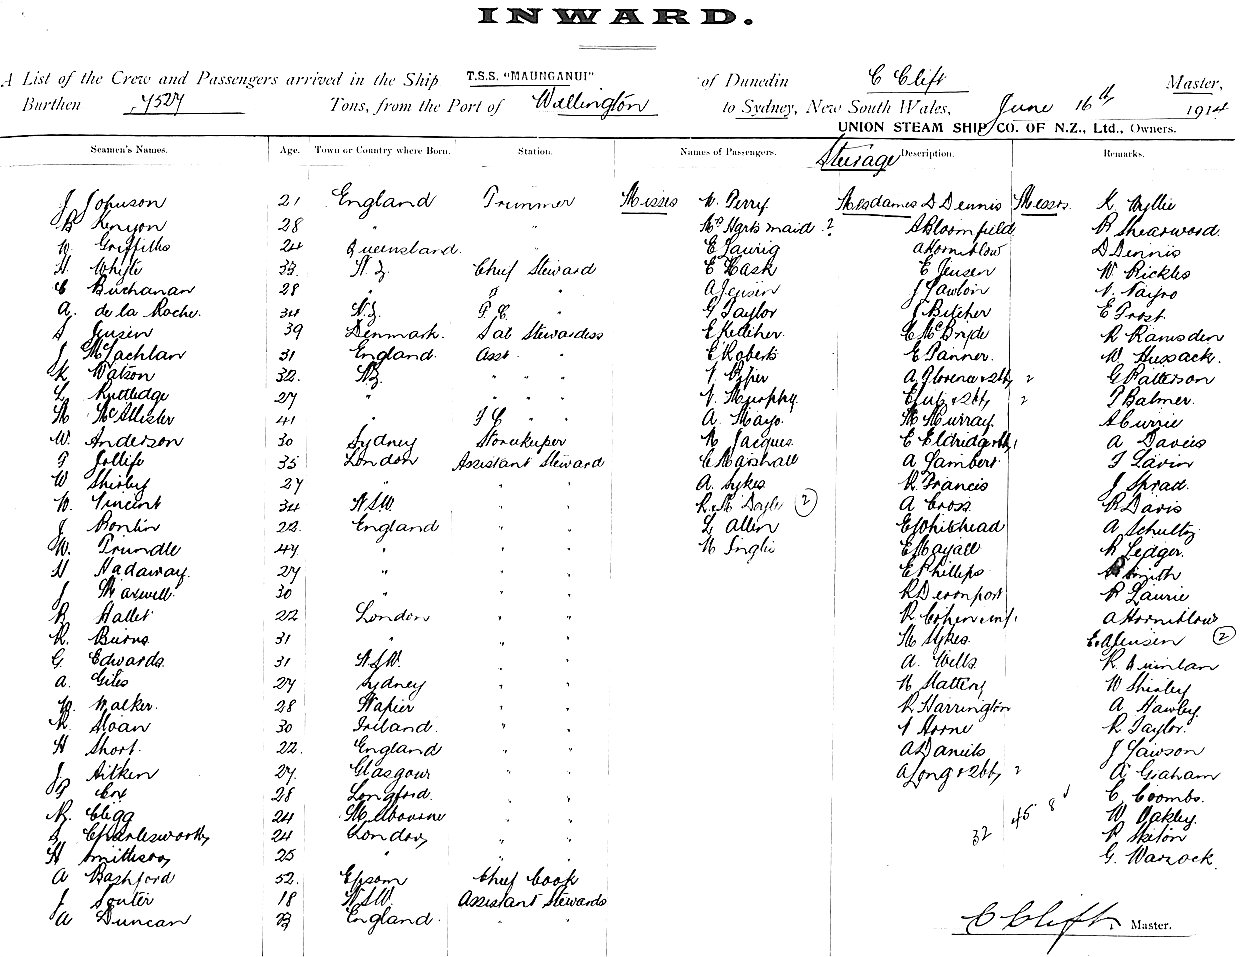 INWARD.
A List of the Crew and Passengers arrived in the Ship T.S.S. "MAUNGANUI" of Dunedin C Clift Master,
Burthen 7527 Tons, from the Port of Wellington to Sydney, New South Wales, June 16th 1914
UNION STEAM SHIP CO. OF N.Z., Ltd., Owners.
Seamen's Names. Age. Town or Country where Born. Station. Names of Passengers. Steerage Description. Remarks.
J Johnson 21 England Trimmer Misses Perry Mesdames D Dennis Messrs K Wyllie
B Kenyon 28 " " maid 2 A Bloomfield R Shearwood.
W Griffiths 24 Queensland. " E Laurig A Horniblow D Dennis
H Whyte 33 N.Z. Chief Steward E Hask E Jensen W Rickles
C Buchanan 28 " 2 " A Jensen J Lawlor
A. de la Roche. 34 N.Z. " G Taylor J Butcher E Frost
S Jensen 39 Denmark. Sal Stewardess E Kelliher C McBryde R Ramsden
J McLachlan 31 England. Asst. " E Roberts E Panner. W Hussack.
K Watson 32. NZ. " " A Florence & 2 2 G Patterson
L Rutledge 27 " " " Murphy 2 P Balmer.
M McAllister 41 " " A. Mayo. M Murray. A Currie
W. Anderson 30 Sydney Storekeeper M Jacques C A Davies
F Jolliffe 35 London Assistant Steward C Marshall A Lambert F Lavin
W Shirley 27 " " " A. Sykes R Francis J Sprad.
W. Vincent 34 N.S.W. " " R. M Doyle (2) A Cross R Davis
J Ronlin 22. England " " L Allen E Whitehead A Schultz
W. Trundle 44 " " " M Inglis E Mayall R Ledger.
H Hadaway. 27 " " " E Phillips Smith
J Maxwell. 30 " " " R Devonport R Laurie
R Hallet 22 London " " R Cohen & inf. A Horniblow
R. Burns 31 " " " M Sykes. E. A Jensen (2)
G. Edwards. 31 N.S.W. " " A. Wells R Quinlan
A. Giles 27 Sydney " " N Slattery W Shirley
W. Walker. 28 Napier " " R Harrington A Hawley
R. Sloan 30 Ireland. " " Horne R Taylor.
H Short. 22. England " " A Daniels J Lawson
J Aitken 27. Glasgow " " A Long & 2 2 A Graham
F Cox 28 Longford. " " C Coombs.
R. Clegg 24 Melbourne " " 32 45 8 W Oakley.
S Charlesworth 24 London " " R Skilton
H Smithson 25 " " " G. Warnock.
A Bashford 52. Epsom Chief Cook
J Souter 18 N.S.W. Assistant Stewards
A Duncan England. " "
C Clift. Master.